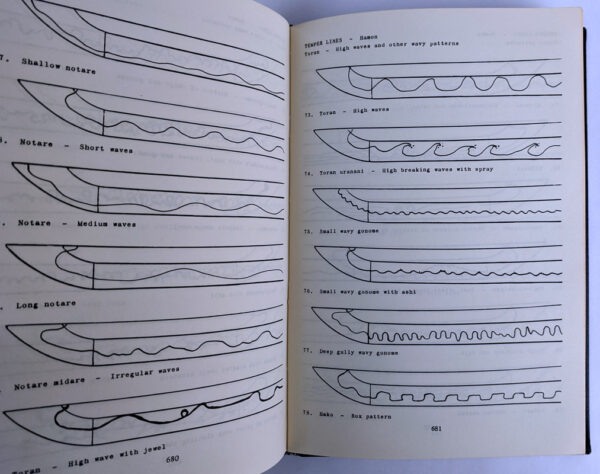 7. Shallow notare
Notare - Short waves
Notare - Medium waves
Long notare
Notare midare - Irregular waves
Toran - High wave with jewel
680
TEMPER LINES - Hamon
Toran - High waves and other wavy patterns
73. Toran - High waves
74. Toran uranani - High breaking waves with spray
75. Small wavy gonome
76. Small wavy gonome with ashi
77. Deep gully wavy gonome
78. Hako - Box pattern
681